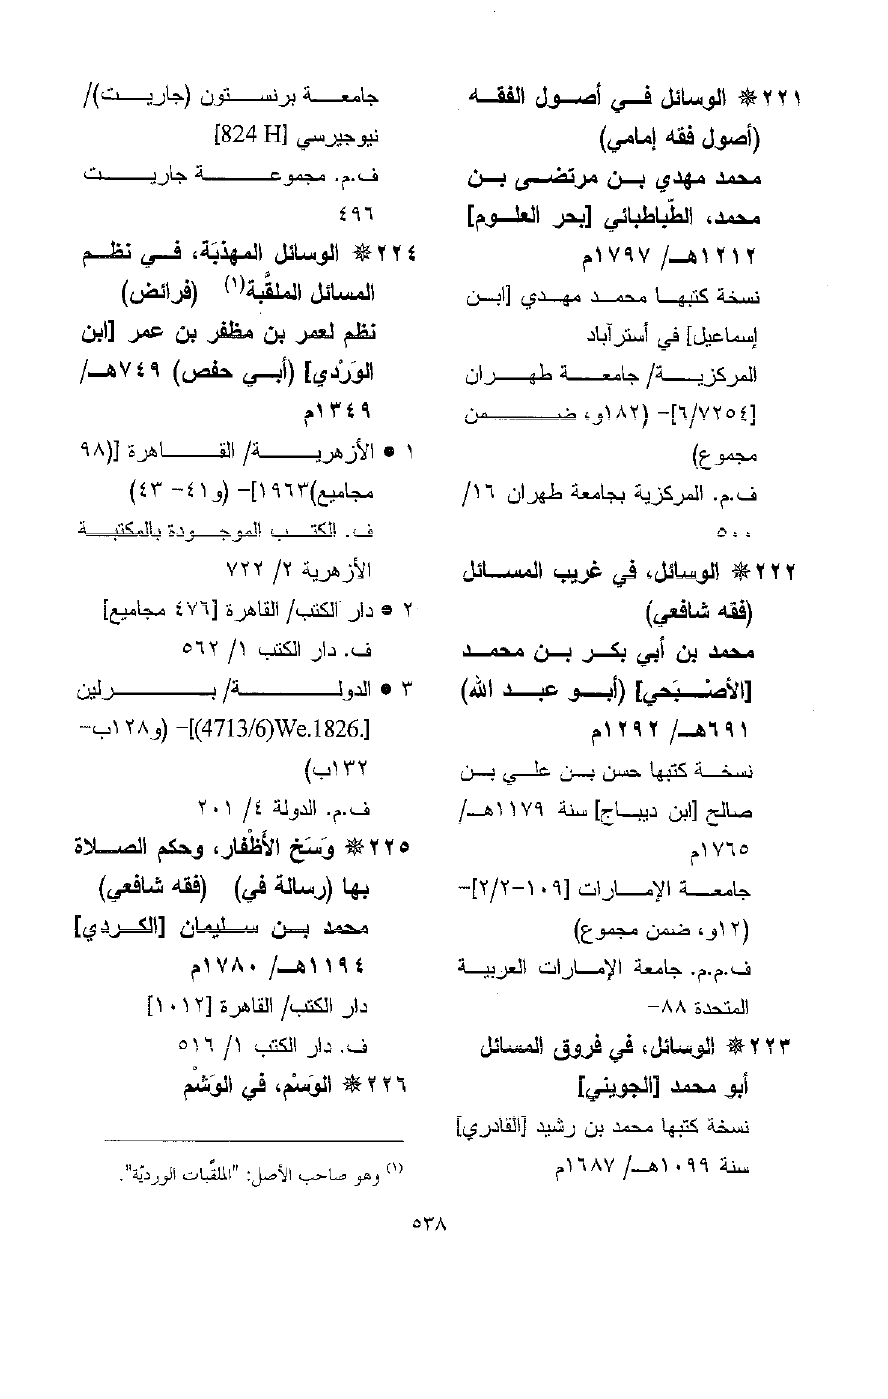 ٢٢١ ❋ الوسائل في أصول الفقه
(أصول فقه إمامي)
محمد مهدي بن مرتضى بن
محمد، الطَّباطبائي [بحر العلوم]
١٢١٢هـ/ ١٧٩٧م
نسخة كتبها محمد مهدي [ابن
إسماعيل] في أسترآباد
المركزية/ جامعة طهران
[٦/٧٢٥٤]- (١٨٢و، ضمن
مجموع)
ف.م. المركزية بجامعة طهران ١٦/
٥٠٠
٢٢٢ ❋ الوسائل، في غريب المسائل
(فقه شافعي)
محمد بن أبي بكر بن محمد
[الأصْبَحي] (أبو عبد الله)
٦٩١هـ/ ١٢٩٢م
نسخة كتبها حسن بن علي بن
صالح [ابن ديباج] سنة ١١٧٩هـ/
١٧٦٥م
جامعة الإمارات [١٠٩-٢/٢]-
(١٢و، ضمن مجموع)
ف.م.م. جامعة الإمارات العربية
المتحدة ٨٨-
٢٢٣ ❋ الوسائل، في فروق المسائل
أبو محمد [الجويني]
نسخة كتبها محمد بن رشيد [القادري]
سنة ١٠٩٩هـ/ ١٦٨٧م
جامعة برنستون (جاريت)/
نيوجيرسي [824 H]
ف.م. مجموعة جاريت
٤٩٦
٢٢٤ ❋ الوسائل المهذبَة، في نظم
المسائل الملقَّبة(١) (فرائض)
نظم لعمر بن مظفر بن عمر [ابن
الوَرْدي] (أبي حفص) ٧٤٩هـ/
١٣٤٩م
١ ● الأزهرية/ القاهرة [(٩٨
مجاميع)١٩٦٣]- (و٤١- ٤٣)
ف. الكتب الموجودة بالمكتبة
الأزهرية ٢/ ٧٢٢
٢ ● دار الكتب/ القاهرة [٤٧٦ مجاميع]
ف. دار الكتب ١/ ٥٦٢
٣ ● الدولة/ برلين
[.We.1826(4713/6)]- (و١٢٨ب-
١٣٢ب)
ف.م. الدولة ٤/ ٢٠١
٢٢٥ ❋ وَسَخ الأظْفار، وحكم الصلاة
بها (رسالة في) (فقه شافعي)
محمد بن سليمان [الكردي]
١١٩٤هـ/ ١٧٨٠م
دار الكتب/ القاهرة [١٠١٢]
ف. دار الكتب ١/ ٥١٦
٢٢٦ ❋ الوَسْم، في الوَشْم
(١) وهو صاحب الأصل: "الملقَّبات الورديّة".
٥٣٨